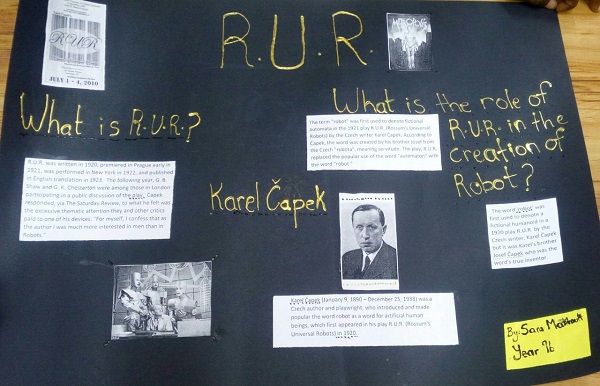 R.U.R.
RUR
JULY 1 - 4, 2010
What is R.U.R.?
R.U.R. was written in 1920, premiered in Prague early in
1921, was performed in New York in 1922, and published
in English translation in 1923. The following year, G. B.
Shaw and G. K. Chesterton were among those in London
participating in a public discussion of the play. Capek
responded, via The Saturday Review, to what he felt was
the excessive thematic attention they and other critics
paid to one of his devices: "For myself, I confess that as
the author I was much more interested in men than in
Robots."
What is the role of
R.U.R. in the
creation of
Robot?
The term "robot" was first used to denote fictional
automata in the 1921 play R.U.R. (Rossum's Universal
Robots) by the Czech writer Karel Capek. According to
Capek, the word was created by his brother Josef from
the Czech "robota", meaning servitude. The play, R.U.R,
replaced the popular use of the word "automaton" with
the word "robot."
Karel Čapek
The word 'robot' was
first used to denote a
fictional humanoid in a
1920 play R.U.R. by the
Czech writer, Karel Capek
but it was Karel's brother
Josef Capek who was the
word's true inventor.
Karel Capek (January 9, 1890 – December 25, 1938) was a
Czech author and playwright, who introduced and made
popular the word robot as a word for artificial human
beings, which first appeared in his play R.U.R. (Rossum's
Universal Robots) in 1920.
By: Sara
Year 9b